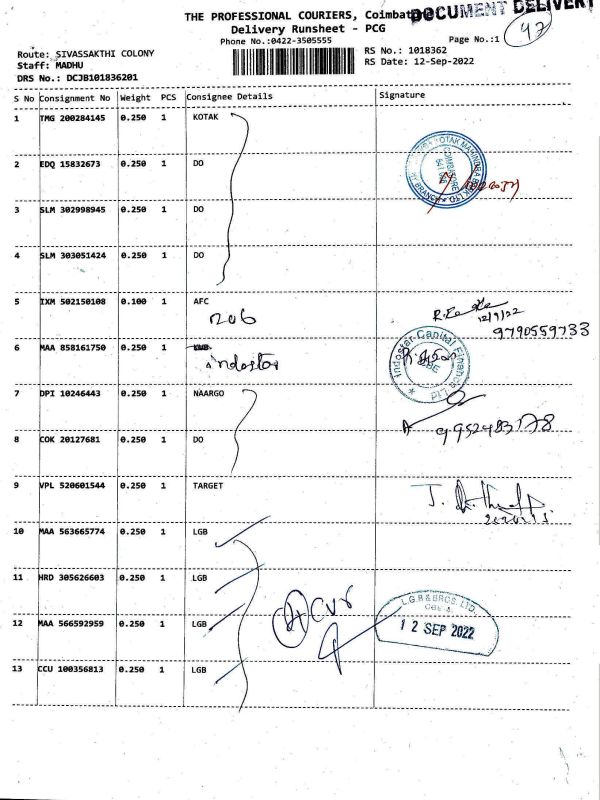 THE PROFESSIONAL COURIERS, Coimbato
DOCUMENT DELIVERY
Delivery Runsheet - PCG
Phone No.:0422-3505555
Page No.:1
47
Route: SIVASSAKTHI COLONY
RS No.: 1018362
Staff: MADHU
RS Date: 12-Sep-2022
DRS No.: DCJB101836201
S No Consignment No Weight PCS Consignee Details Signature
1 TMG 200284145 0.250 1 KOTAK
2 EDQ 15832673 0.250 1 DO
3 SLM 302998945 0.250 1 DO
4 SLM 303051424 0.250 1 DO
5 IXM 502150108 0.100 1 AFC
12/9/22
9790559733
6 MAA 858161750 0.250 1
indostar
Indostar Capital Finance Ltd
CBE
7 DPI 10246443 0.250 1 NAARGO
8 COK 20127681 0.250 1 DO
9952483178
9 VPL 520601544 0.250 1 TARGET
10 MAA 563665774 0.250 1 LGB
11 HRD 305626603 0.250 1 LGB
12 MAA 566592959 0.250 1 LGB
4 CVR
L.G.B & BROS. LTD
12 SEP 2022
13 CCU 100356813 0.250 1 LGB